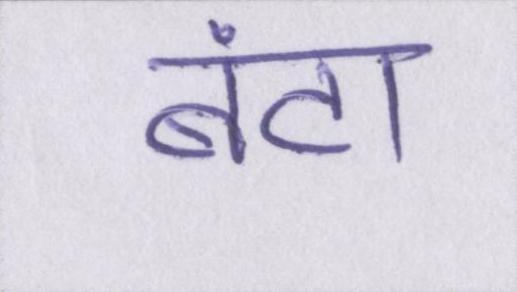 बंटा